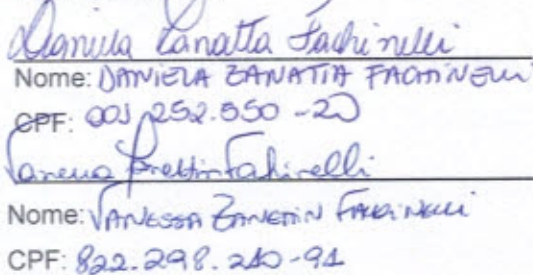 Daniela Zanatta Fachinelli
Nome: DANIELA ZANATTA FACHINELLI
CPF: 001.252.550-20
Vanessa Fachinelli
Nome: VANESSA FACHINELLI
CPF: 822.298.210-91